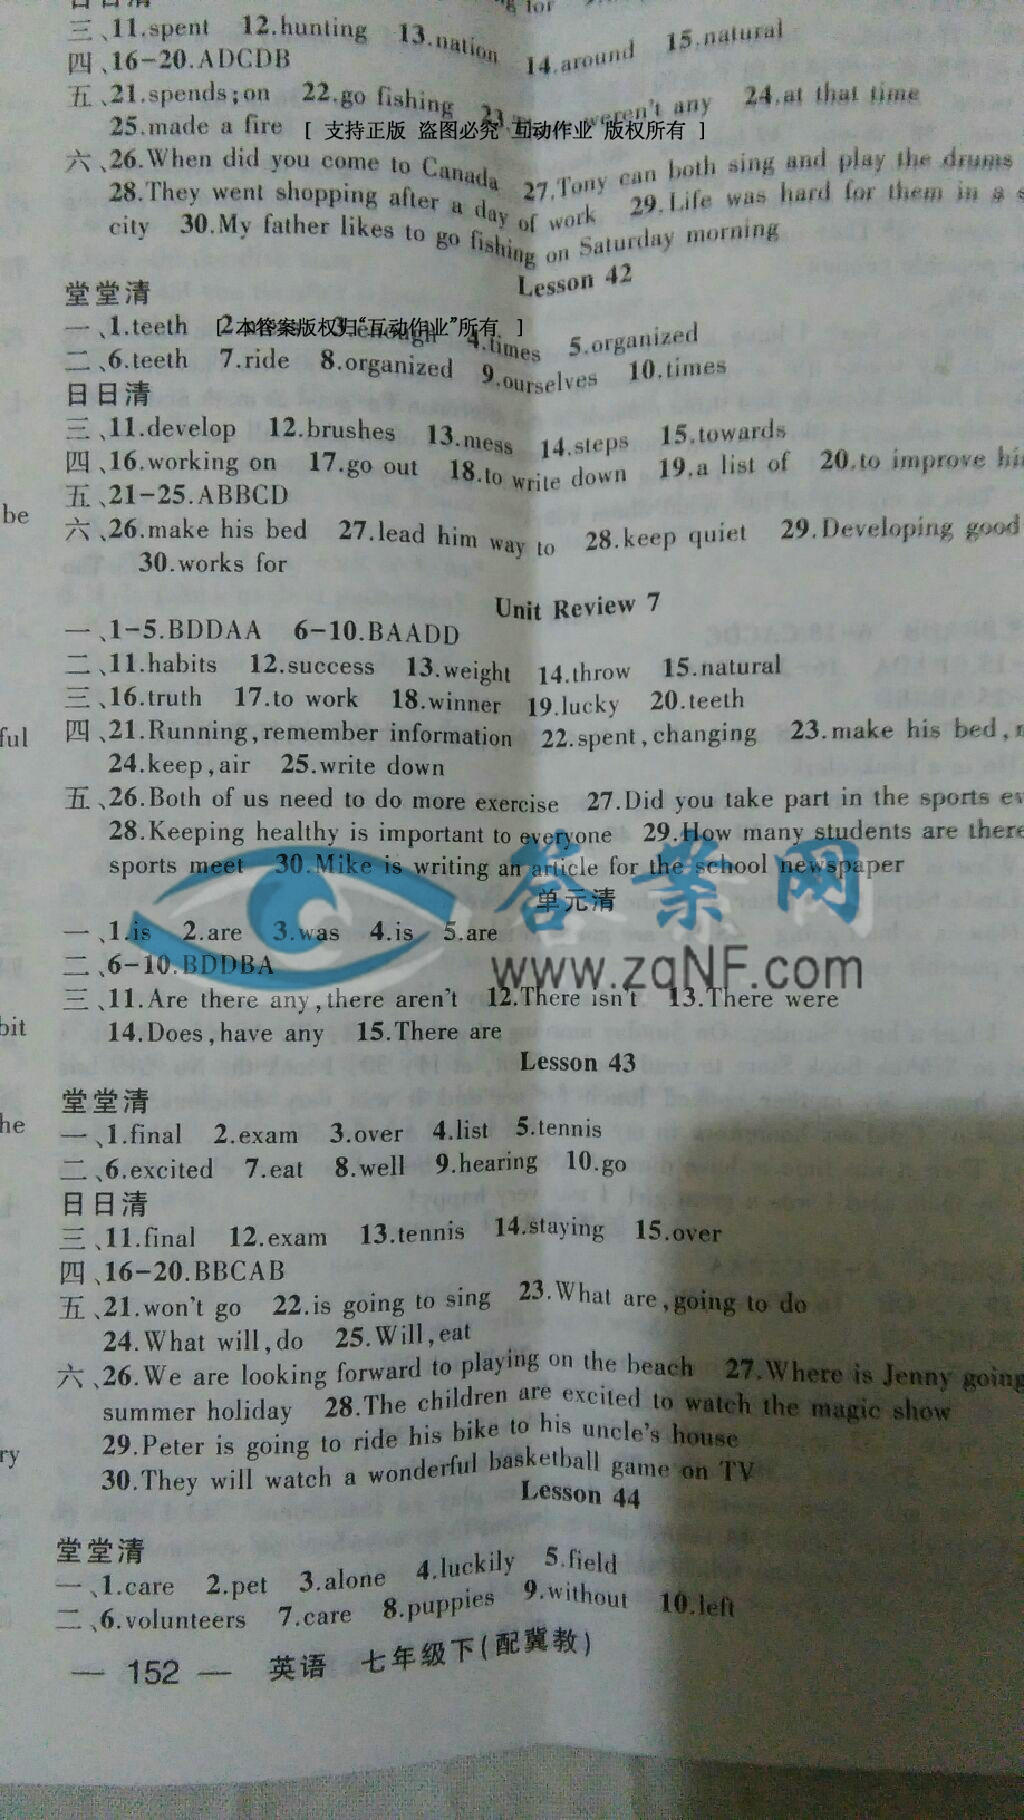 日日清
三、11.spent 12.hunting 13.nation 14.around 15.natural
四、16-20.ADCDB
五、21.spends;on 22.go fishing 23. weren't any 24.at that time
25.made a fire [ 支持正版 盗图必究 互动作业 版权所有 ]
六、26.When did you come to Canada 27.Tony can both sing and play the drums
28.They went shopping after a day of work 29.Life was hard for them in a
city 30.My father likes to go fishing on Saturday morning
Lesson 42
堂堂清
一、1.teeth 3.enough 4.times 5.organized
[ 本答案版权归“互动作业”所有 ]
二、6.teeth 7.ride 8.organized 9.ourselves 10.times
日日清
三、11.develop 12.brushes 13.mess 14.steps 15.towards
四、16.working on 17.go out 18.to write down 19.a list of 20.to improve
五、21-25.ABBCD
be
六、26.make his bed 27.lead him way to 28.keep quiet 29.Developing good
30.works for
Unit Review 7
一、1-5.BDDAA 6-10.BAADD
二、11.habits 12.success 13.weight 14.throw 15.natural
三、16.truth 17.to work 18.winner 19.lucky 20.teeth
ful
四、21.Running,remember information 22.spent,changing 23.make his bed,
24.keep,air 25.write down
五、26.Both of us need to do more exercise 27.Did you take part in the sports
28.Keeping healthy is important to everyone 29.How many students are there
sports meet 30.Mike is writing an article for the school newspaper
答案网
www.zqNF.com
单元清
一、1.is 2.are 3.was 4.is 5.are
二、6-10.BDDBA
三、11.Are there any,there aren't 12.There isn't 13.There were
bit
14.Does,have any 15.There are
Lesson 43
堂堂清
he
一、1.final 2.exam 3.over 4.list 5.tennis
二、6.excited 7.eat 8.well 9.hearing 10.go
日日清
三、11.final 12.exam 13.tennis 14.staying 15.over
四、16-20.BBCAB
五、21.won't go 22.is going to sing 23.What are,going to do
24.What will,do 25.Will,eat
六、26.We are looking forward to playing on the beach 27.Where is Jenny going
summer holiday 28.The children are excited to watch the magic show
29.Peter is going to ride his bike to his uncle's house
ry
30.They will watch a wonderful basketball game on TV
Lesson 44
堂堂清
一、1.care 2.pet 3.alone 4.luckily 5.field
二、6.volunteers 7.care 8.puppies 9.without 10.left
— 152 — 英语 七年级下(配冀教)